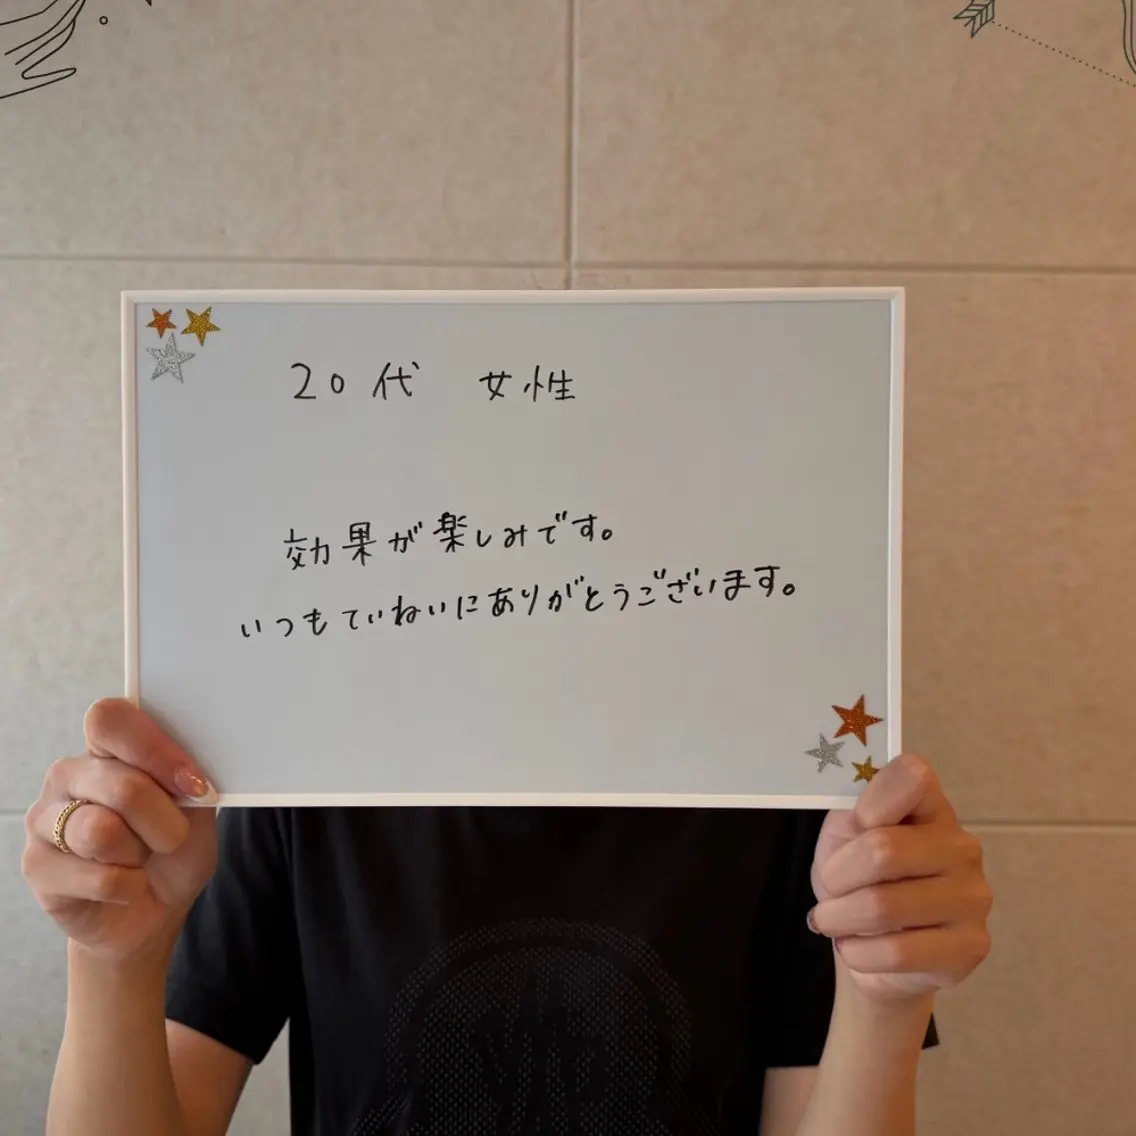 20代 女性
効果が楽しみです。
いつもていねいにありがとうございます。